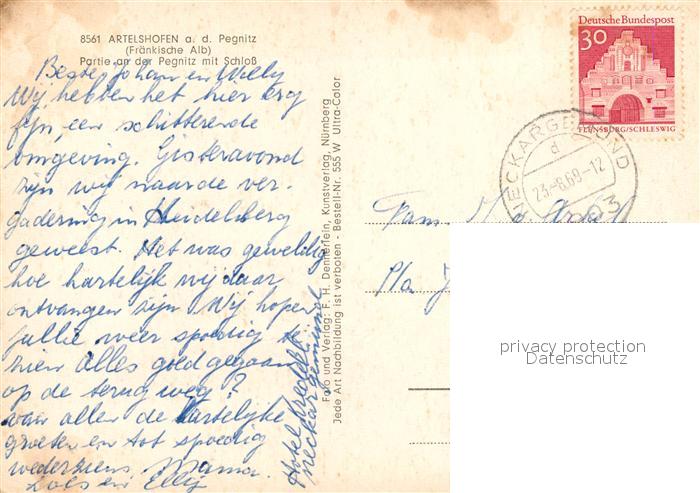 8561 ARTELSHOFEN a. d. Pegnitz
(Fränkische Alb)
Partie an der Pegnitz mit Schloß
Beste Johan en Willy
Wij hebben het hier erg
fijn, een schitterende
omgeving. Gisteravond
zijn wij naar de ver-
gadering in Heidelberg
geweest. Het was geweldig
hoe hartelijk wij daar
ontvangen zijn Wij hopen
jullie weer spoedig te
zien alles goed gegaan
op de terug weg?
van allen de hartelijke
groeten en tot spoedig
wederziens Mama.
en Elly
Hotel
Neckargemünd
Foto und Verlag: F. H. Dennerlein, Kunstverlag, Nürnberg
Jede Art Nachbildung ist verboten - Bestell-Nr. 555 W Ultra-Color
Deutsche Bundespost
30
FLENSBURG/SCHLESWIG
NECKARGEMÜND
d
23.-8.69-12
Fam.
P/a
privacy protection
Datenschutz